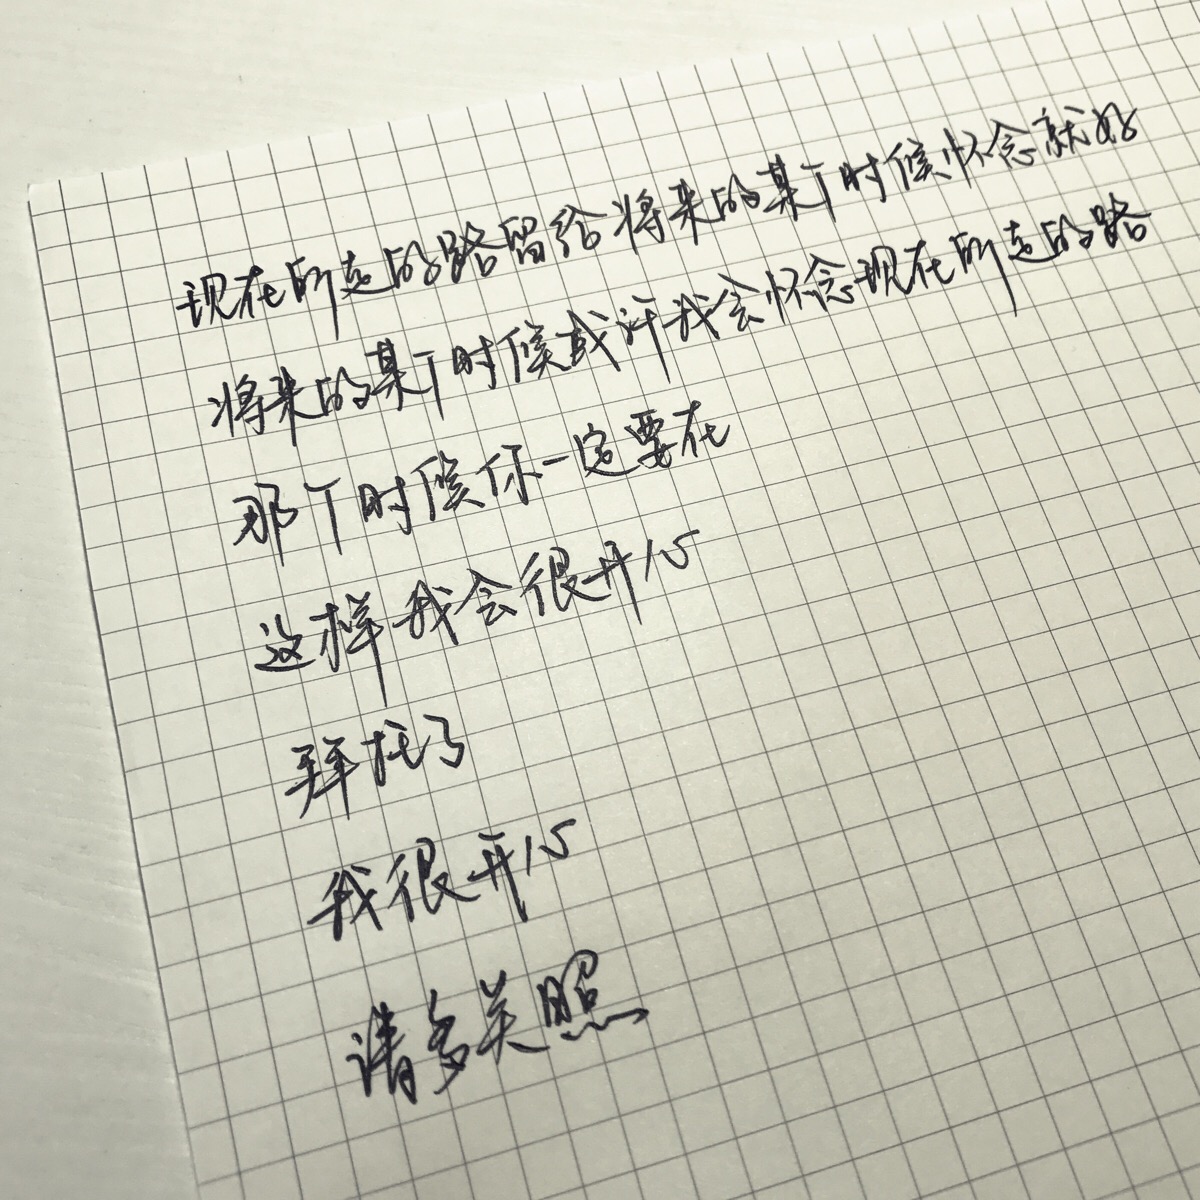 现在所走的路留给将来的某个时候怀念就好
将来的某个时候或许我会怀念现在所走的路
那个时候你一定要在
这样我会很开心
拜托了
我很开心
请多关照